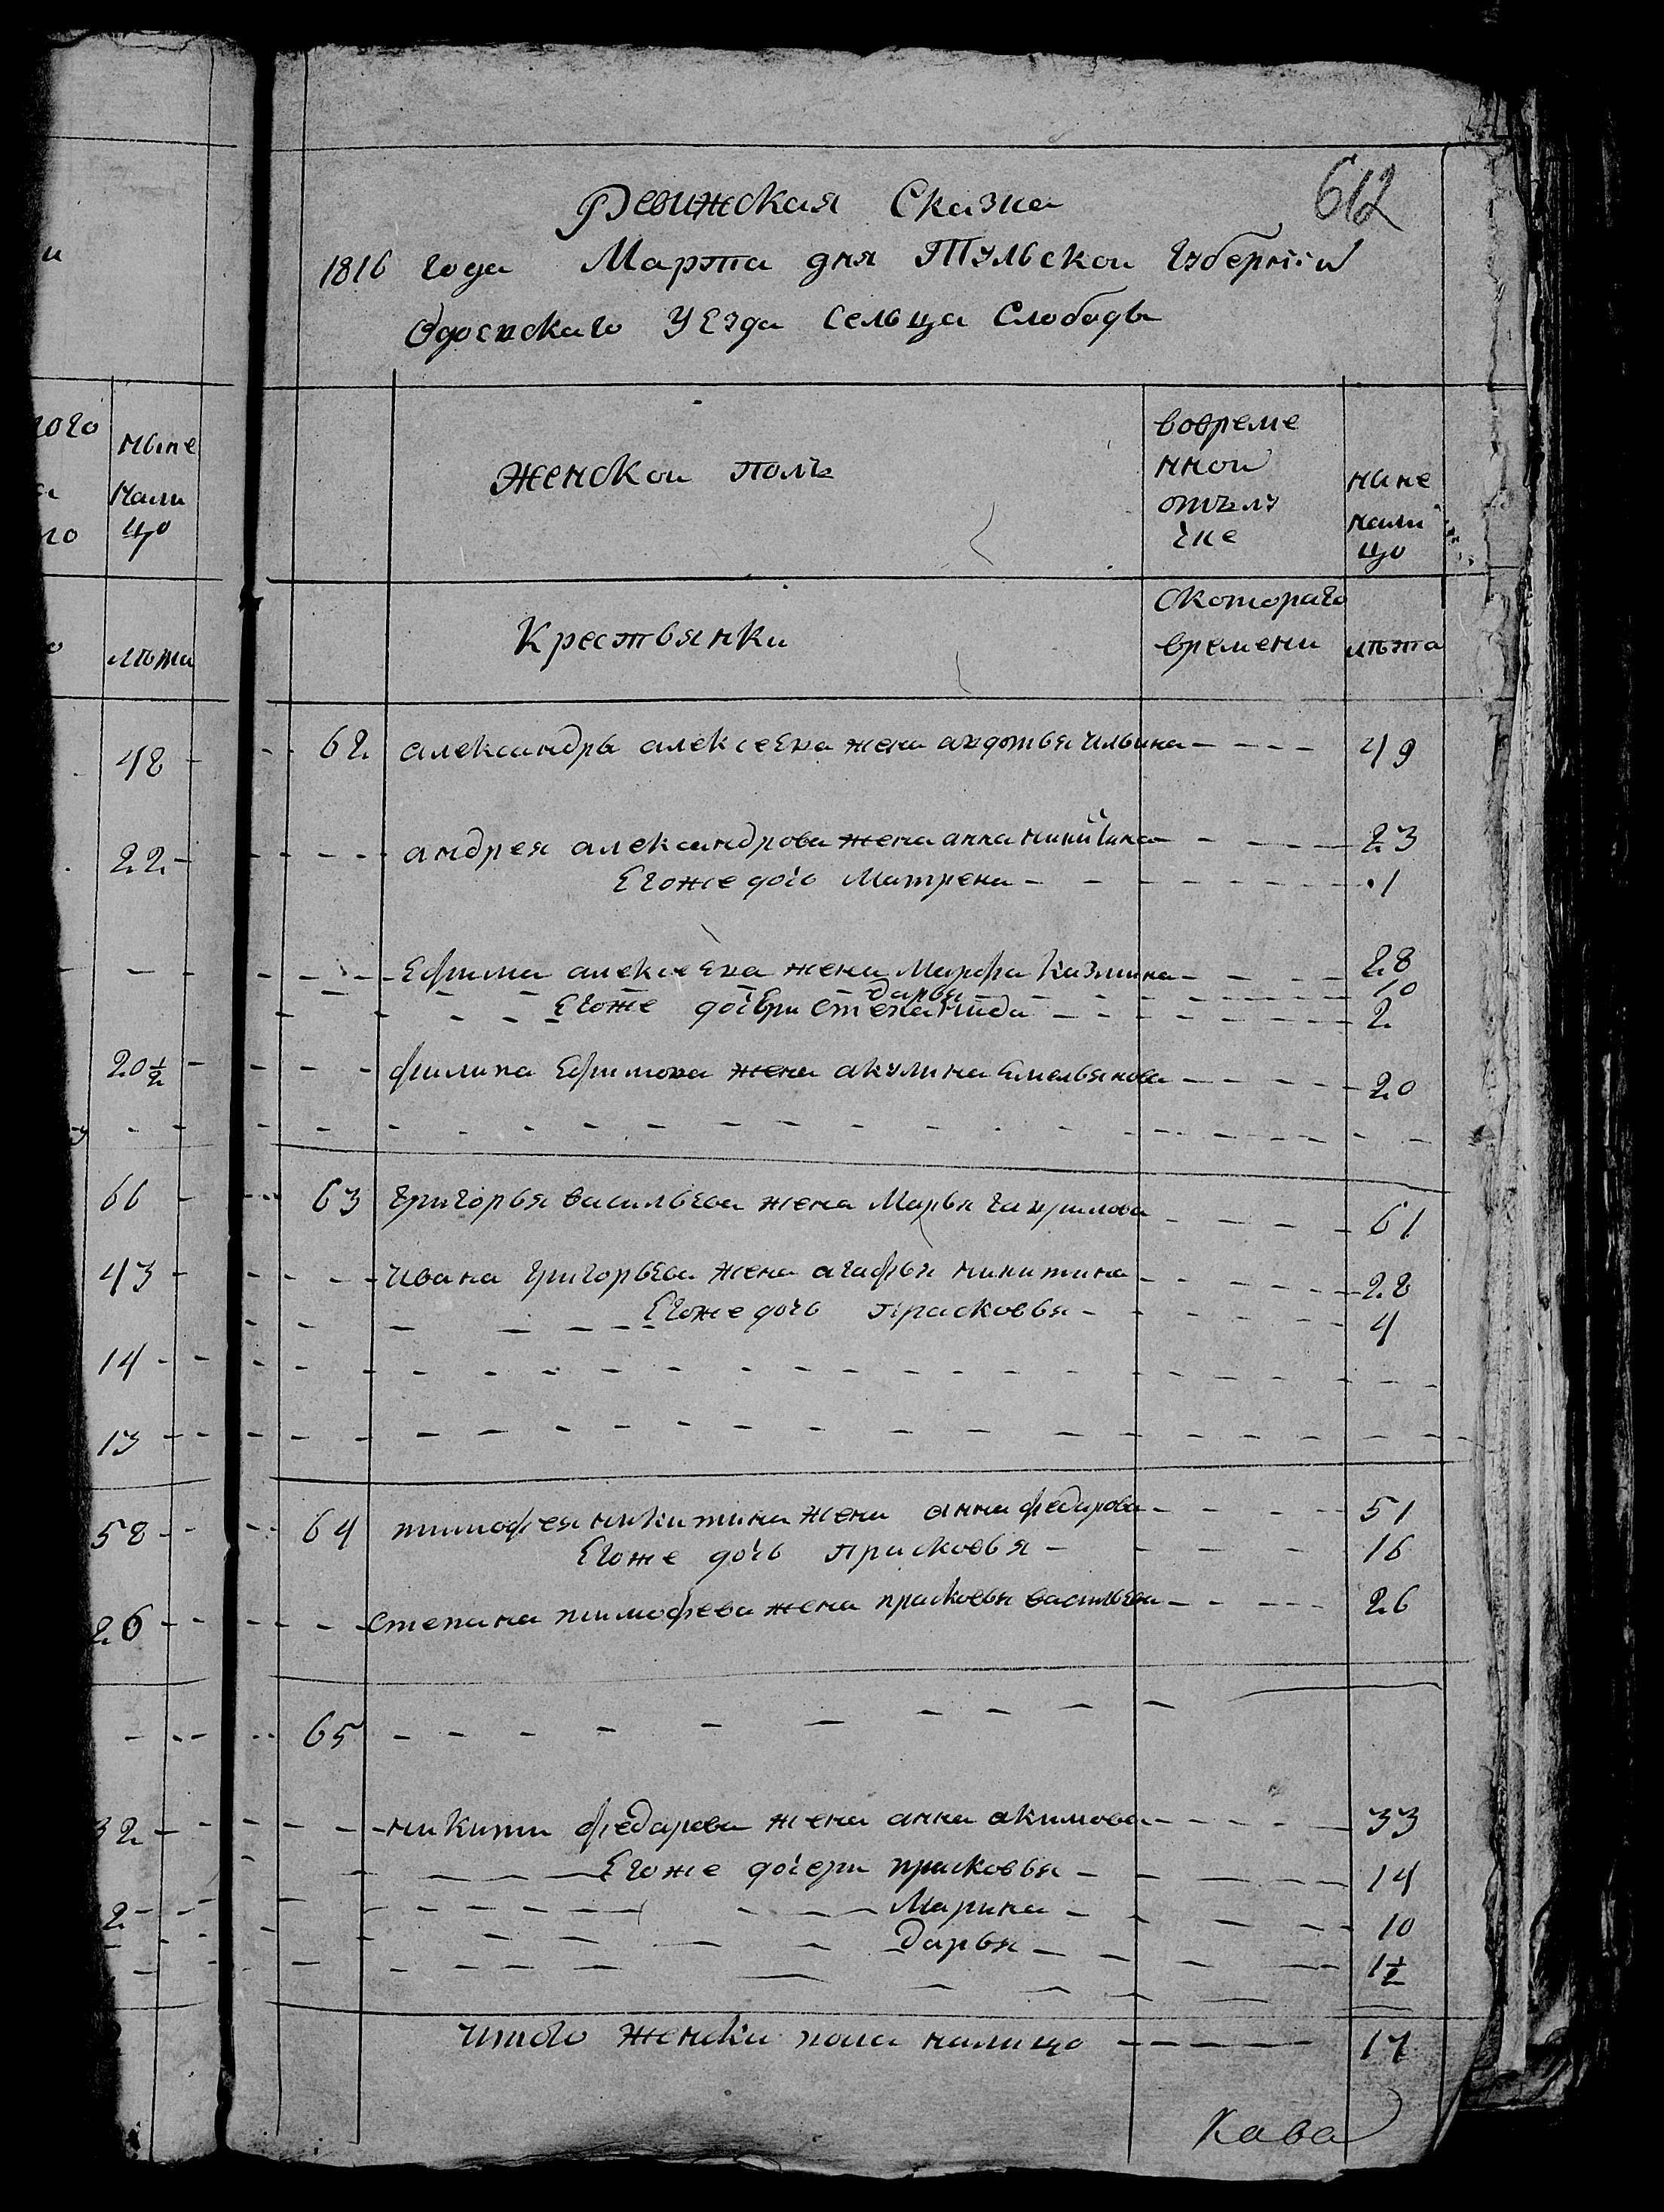 612
Ревижская Сказка
1816 года Марта дня Тульской губернiи
Одоевскаго Уезда сельца Слободы
ного
ныне
нали
цо
лета
48
22
20 1/2
66
43
14
13
58
26
32
2
Женской полъ
вовреме
нной
отълу
чке
нине
нали
цо
Крестьянки
скотораго
времени
лѣта
62 александры алексеева жена авдотья ильина 49
андрея александрова жена анна никитина 23
Егоже дочь Матрена 1
Ефима алексеева жена Марфа Казмина 28
дарья 10
Егоже дочери степанида 2
филипа Ефимова жена акулина Емельянова 20
63 григорья васильева жена Марья гаврилова 61
ивана григорьева жена агафья никитина 28
Егоже дочь прасковья 4
64 тимофея никитина жена анна федарова 51
Егоже дочь прасковья 16
степана тимофеева жена прасковья васильева 26
65
никиты федарова жена анна акимова 33
Егоже дочери прасковья 14
Марина 10
дарья 1 1/2
итого женска пола налицо 17
Кава